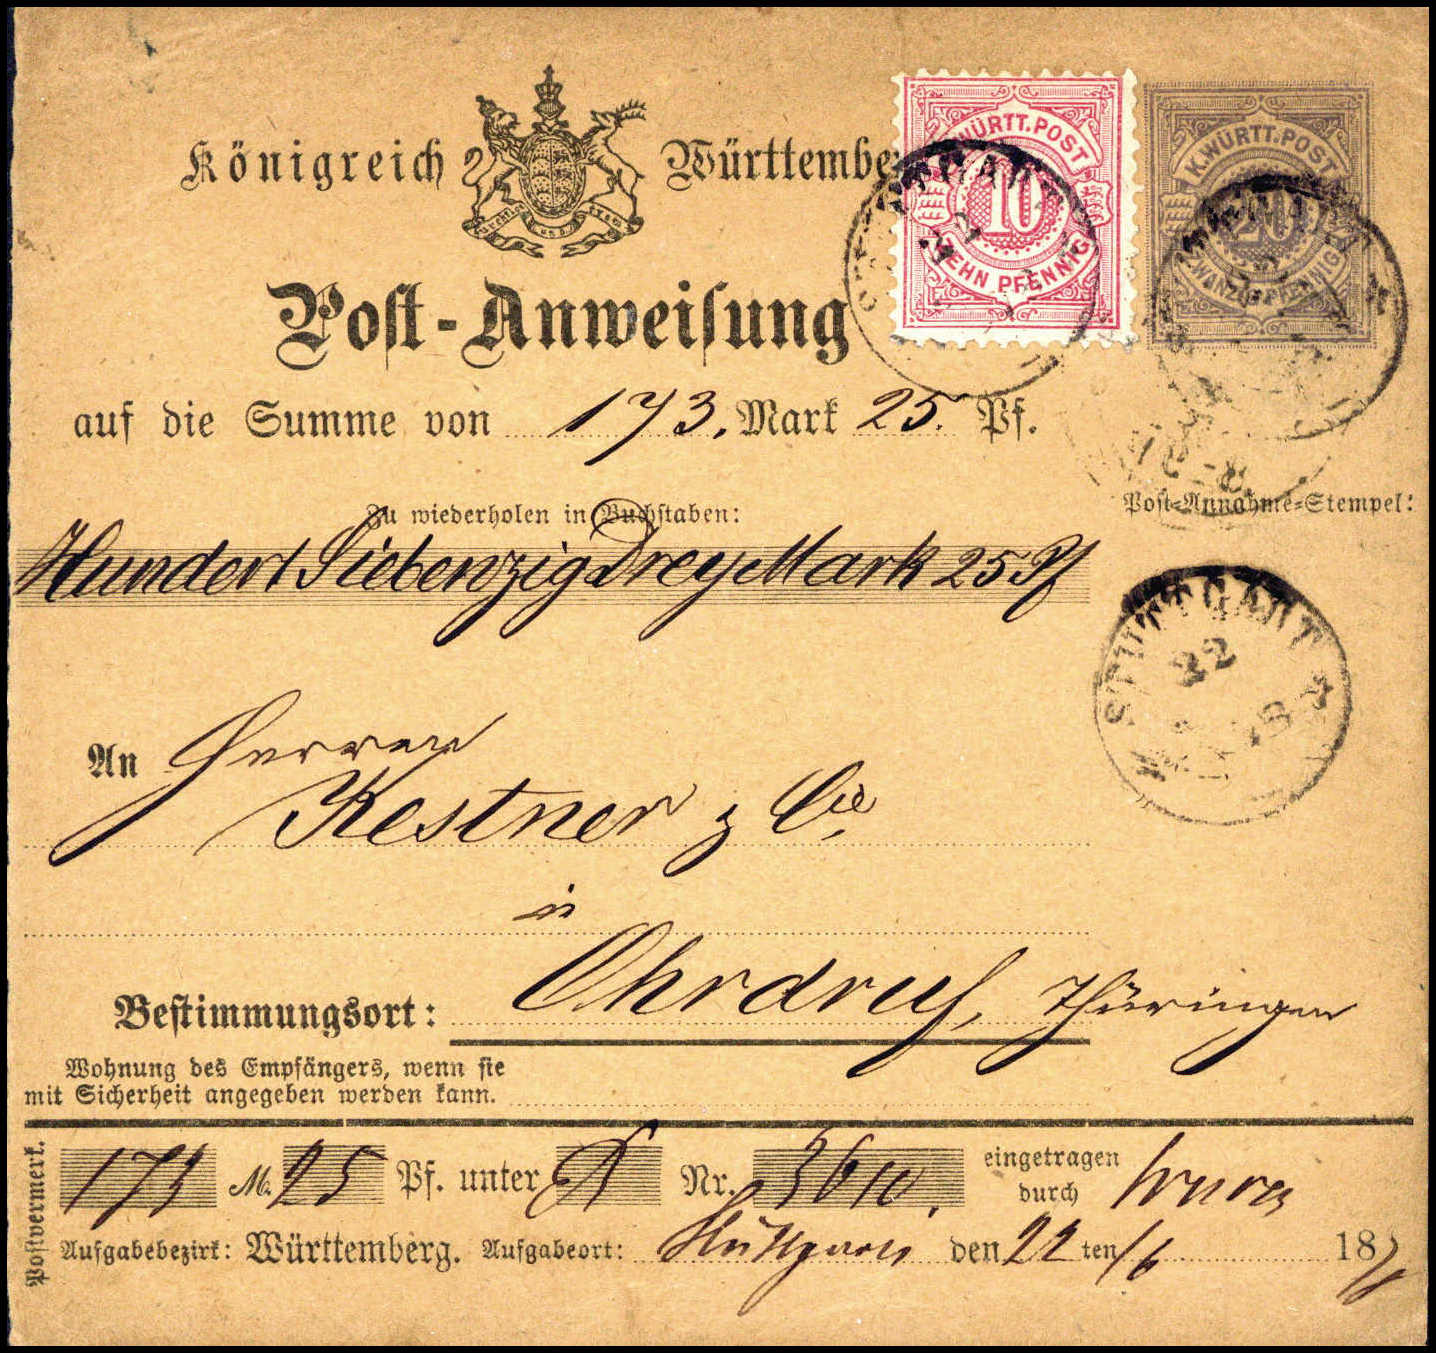 Königreich Württembe
K. WÜRTT. POST
10
ZEHN PFENNIG
K. WÜRTT. POST
20
ZWANZIG PFENNIG
Post-Anweisung
auf die Summe von 173. Mark 25. Pf.
Zu wiederholen in Buchstaben:
Post-Annahme-Stempel:
Hundert Siebenzig Drey Mark 25 Pf
STUTTGART
22
An Herren
Kestner & Cie.
in
Bestimmungsort: Ohrdruf, Thüringen
Wohnung des Empfängers, wenn sie
mit Sicherheit angegeben werden kann.
Postvermerk.
173 M. 25 Pf. unter A Nr. 3610. eingetragen
durch
Aufgabebezirk: Württemberg. Aufgabeort: Stuttgart den 22 ten /6 18